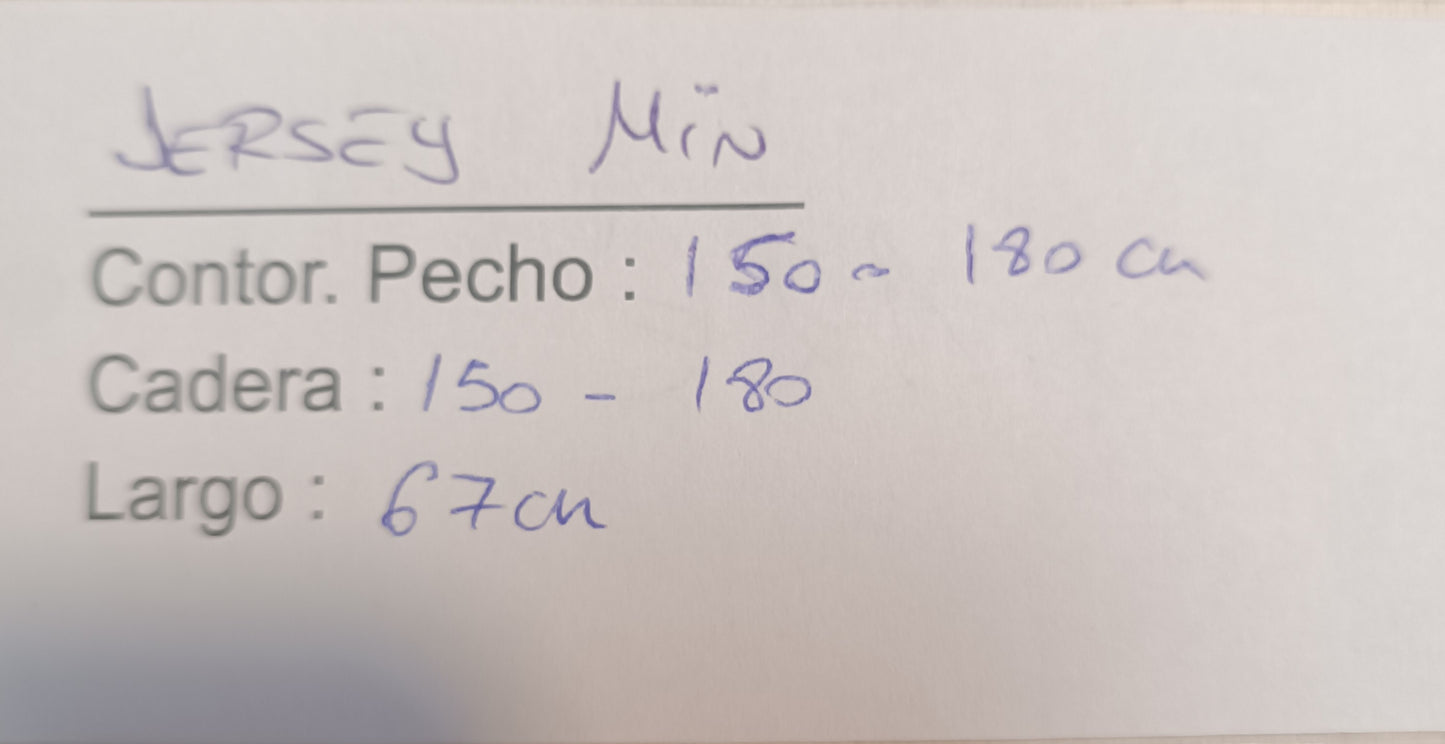 JERSEY MïN
Contor. Pecho : 150 - 180 cm
Cadera : 150 - 180
Largo : 67cm